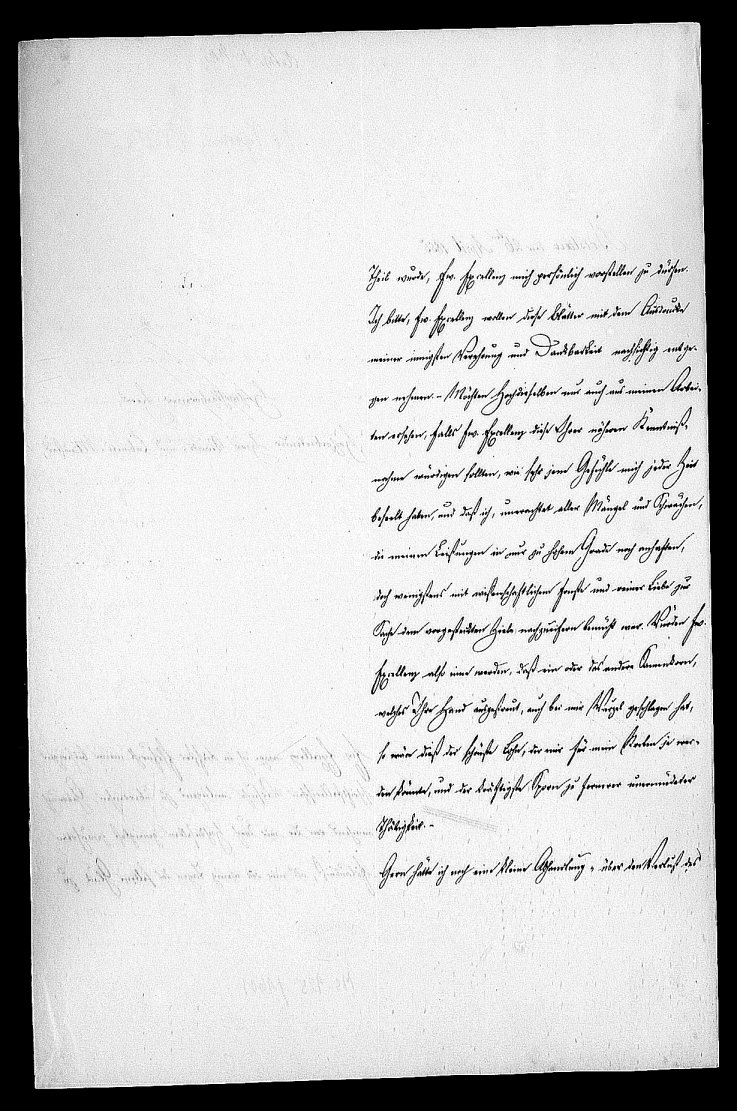 Theil wurde, Ew. Excellenz mich persönlich vorstellen zu dürfen.
Ich bitte, Ew. Excellenz wollen diese Blätter mit dem Ausdrucke
meiner innigsten Verehrung und Dankbarkeit nachsichtig entge-
gen nehmen. – Möchten Hochdieselben nur auch aus meinen Arbei-
ten ersehen, falls Ew. Excellenz diese Ihrer näheren Kenntniß-
nahme würdigen sollten, wie sehr jene Gefühle mich jeder Zeit
beseelt haben, und daß ich, unerachtet aller Mängel und Schwächen,
die meinen Leistungen in nur zu hohem Grade noch anhaften,
doch wenigstens mit wissenschaftlichem Ernste und reiner Liebe zur
Sache dem vorgesteckten Ziele nachzueifern bemüht war. Würden Ew.
Excellenz also inne werden, daß ein oder das andere Samenkorn,
welches Ihre Hand ausgestreut, auch bei mir Wurzel geschlagen hat,
so wäre dieß der schönste Lohn, der mir für mein Streben je wer-
den könnte, und der kräftigste Sporn zu fernerer unermüdeter
Thätigkeit. –
Gern hätte ich noch eine kleine Abhandlung „über den Verlust des